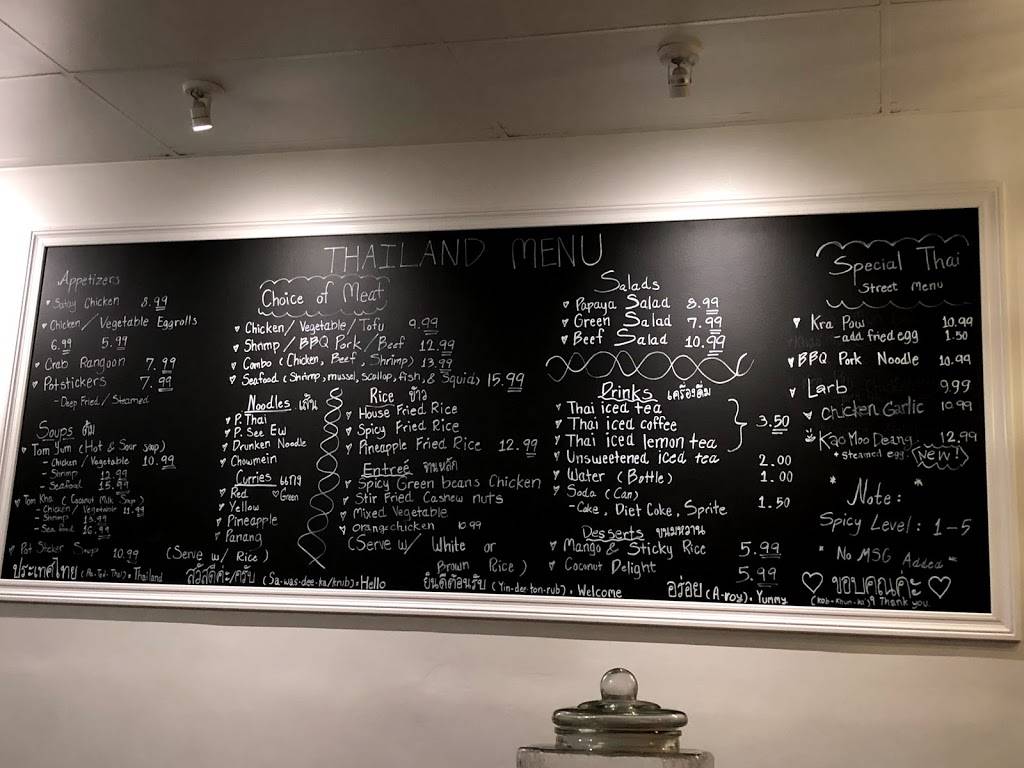 THAILAND MENU
Appetizers
Satay Chicken 8.99
Chicken/Vegetable Eggrolls
6.99 5.99
Crab Rangoon 7.99
Potstickers 7.99
- Deep Fried / Steamed
Soups ต้ม
Tom Yum (Hot & Sour soup)
- Chicken / Vegetable 10.99
- Shrimp 12.99
- Seafood 15.99
Tom Kha (Coconut Milk Soup)
- Chicken / Vegetable 11.99
- Shrimp 13.99
- Seafood 16.99
Pot Sticker Soup 10.99
Choice of Meat
Chicken/Vegetable/Tofu 9.99
Shrimp/BBQ Pork/Beef 12.99
Combo (Chicken, Beef, Shrimp) 13.99
Seafood (Shrimp, mussel, scallop, fish, & Squid) 15.99
Noodles เส้น
P. Thai
P. See Ew
Drunken Noodle
Chowmein
Curries แกง
Red
Green
Yellow
Pineapple
Panang
(Serve w/ Rice)
Rice ข้าว
House Fried Rice
Spicy Fried Rice
Pineapple Fried Rice 12.99
Entreé จานหลัก
Spicy Green beans Chicken
Stir Fried Cashew nuts
Mixed Vegetable
Orange chicken 10.99
(Serve w/ White or
Brown Rice)
Salads
Papaya Salad 8.99
Green Salad 7.99
Beef Salad 10.99
Drinks เครื่องดื่ม
Thai iced tea
Thai iced coffee
Thai iced lemon tea
3.50
Unsweetened iced tea 2.00
Water (Bottle) 1.00
Soda (Can)
- Coke, Diet Coke, Sprite 1.50
Desserts ขนมหวาน
Mango & Sticky Rice 5.99
Coconut Delight 5.99
Special Thai
Street Menu
Kra Pow 10.99
- add fried egg 1.50
BBQ Pork Noodle 10.99
Larb 9.99
Chicken Garlic 10.99
Kao Moo Deang 12.99
* steamed egg. NEW!
* Note: *
Spicy Level: 1-5
* No MSG Added *
ประเทศไทย . Thailand
สวัสดีค่ะ/ครับ (Sa-was-dee-ka/krub). Hello
ยินดีต้อนรับ (Yin-dee-ton-rub). Welcome
อร่อย (A-roy). Yummy
ขอบคุณค่ะ
Thank you